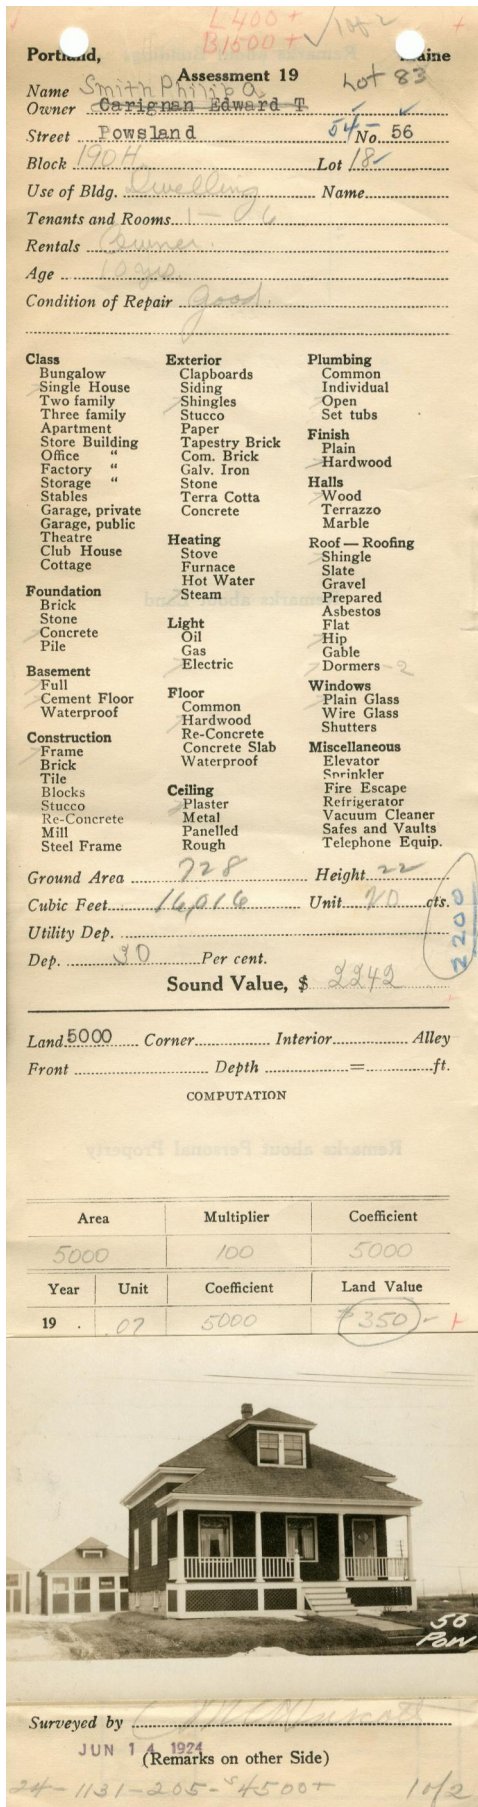 L400+ 1 of 2
B1500+
Portland, Maine
Assessment 19 Lot 83
Name Smith Philip A.
Owner Carignan Edward T
Street Powsland 54- No. 56
Block 190H Lot 18
Use of Bldg. Dwelling Name
Tenants and Rooms 1 - 6
Rentals Owner.
Age 10 yrs.
Condition of Repair Good.
Class
Bungalow
Single House
Two family
Three family
Apartment
Store Building
Office "
Factory "
Storage "
Stables
Garage, private
Garage, public
Theatre
Club House
Cottage
Foundation
Brick
Stone
Concrete
Pile
Basement
Full
Cement Floor
Waterproof
Construction
Frame
Brick
Tile
Blocks
Stucco
Re-Concrete
Mill
Steel Frame
Exterior
Clapboards
Siding
Shingles
Stucco
Paper
Tapestry Brick
Com. Brick
Galv. Iron
Stone
Terra Cotta
Concrete
Heating
Stove
Furnace
Hot Water
Steam
Light
Oil
Gas
Electric
Floor
Common
Hardwood
Re-Concrete
Concrete Slab
Waterproof
Ceiling
Plaster
Metal
Panelled
Rough
Plumbing
Common
Individual
Open
Set tubs
Finish
Plain
Hardwood
Halls
Wood
Terrazzo
Marble
Roof — Roofing
Shingle
Slate
Gravel
Prepared
Asbestos
Flat
Hip
Gable
Dormers - 2
Windows
Plain Glass
Wire Glass
Shutters
Miscellaneous
Elevator
Sprinkler
Fire Escape
Refrigerator
Vacuum Cleaner
Safes and Vaults
Telephone Equip.
Ground Area 728 Height 22
Cubic Feet 16,016 Unit 20 cts.
Utility Dep.
Dep. 30 Per cent.
2200
Sound Value, $ 2242
Land 5000 Corner Interior Alley
Front Depth = ft.
COMPUTATION
Area Multiplier Coefficient
5000 100 5000
Year Unit Coefficient Land Value
19 . .07 5000 $350 - +
56
Pow
Surveyed by
JUN 14 1924
(Remarks on other Side)
24-1131-205-$4500+ 1 of 2